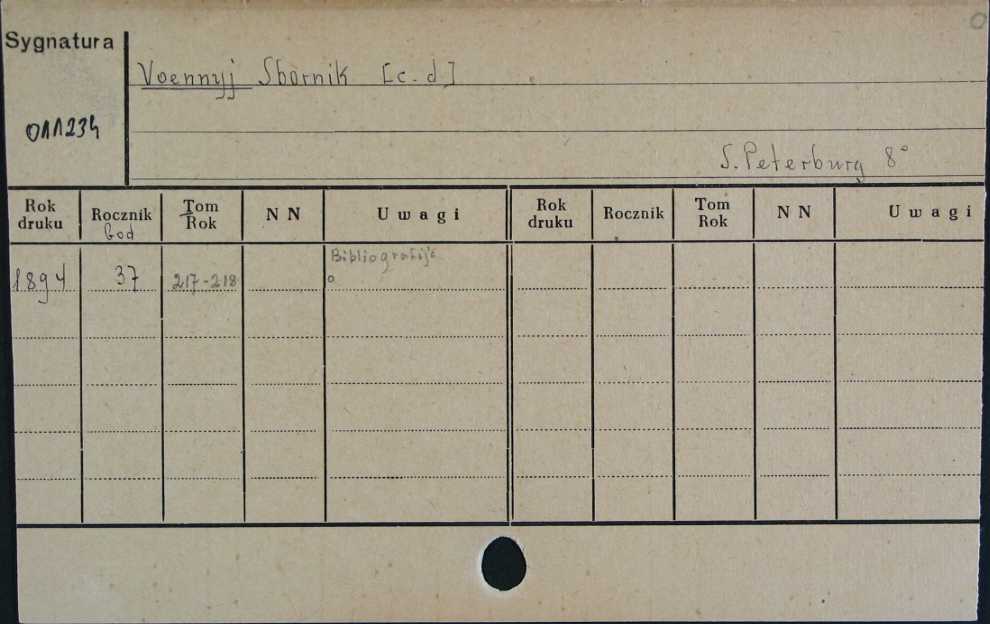 Sygnatura
Voennyj Sbornik [c.d]
011234
S. Peterburg 8°
Rok druku Rocznik God Tom Rok NN Uwagi Rok druku Rocznik Tom Rok NN Uwagi
Bibliografija
1894 37 217-218